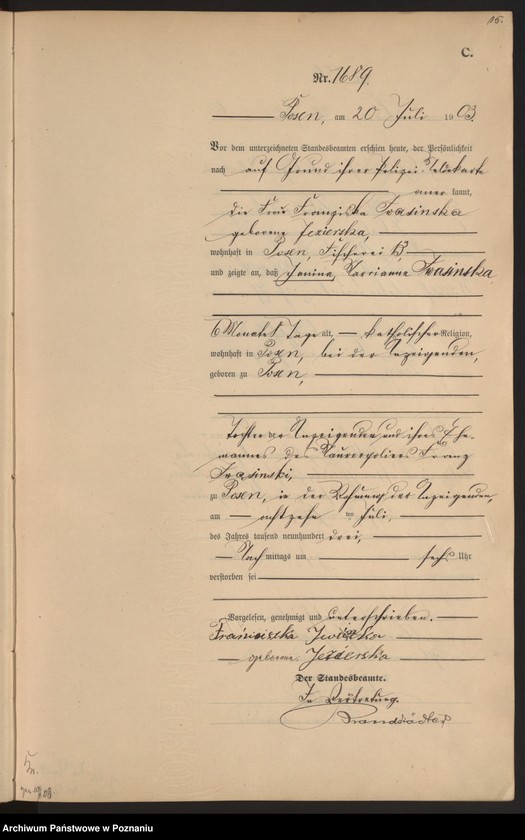 15.
C.
Nr. 1689.
Posen, am 20 Juli 1903.
Vor dem unterzeichneten Standesbeamten erschien heute, der Persönlichkeit
nach auf Grund ihrer Polizei Meldekarte
anerkannt,
die Frau Franziska Iwasinska
geborene Jezierska,
wohnhaft in Posen, Fischerei 13,
und zeigte an, daß Janina, Iwasinska
6 Monate 1 Tage alt, katholischer Religion,
wohnhaft in Posen, bei der Anzeigenden,
geboren zu Posen,
Tochter der Anzeigenden und ihres Ehe-
mannes des Maurerpoliers Franz
Iwasinski,
zu Posen, in der Wohnung der Anzeigenden,
am achtzehnten Juli,
des Jahres tausend neunhundert drei,
Nach mittags um sechs Uhr
verstorben sei
Vorgelesen, genehmigt und unterschrieben.
geborene Jezierska
Der Standesbeamte.
In Vertretung.
Archiwum Państwowe w Poznaniu